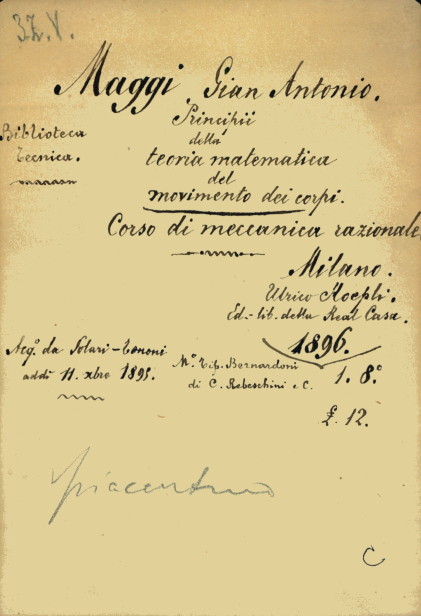 37. X.
Maggi Gian Antonio.
Principii
della
Biblioteca
tecnica.
teoria matematica
del
movimento dei corpi.
Corso di meccanica razionale
Milano.
Ulrico Hoepli.
Ed.-lib. della Real Casa.
1896.
Acq.º da Solari-
addì 11. xbre 1895.
M.º Tip. Bernardoni
di C. Rebeschini e C.
1. 8.º
£. 12.
C